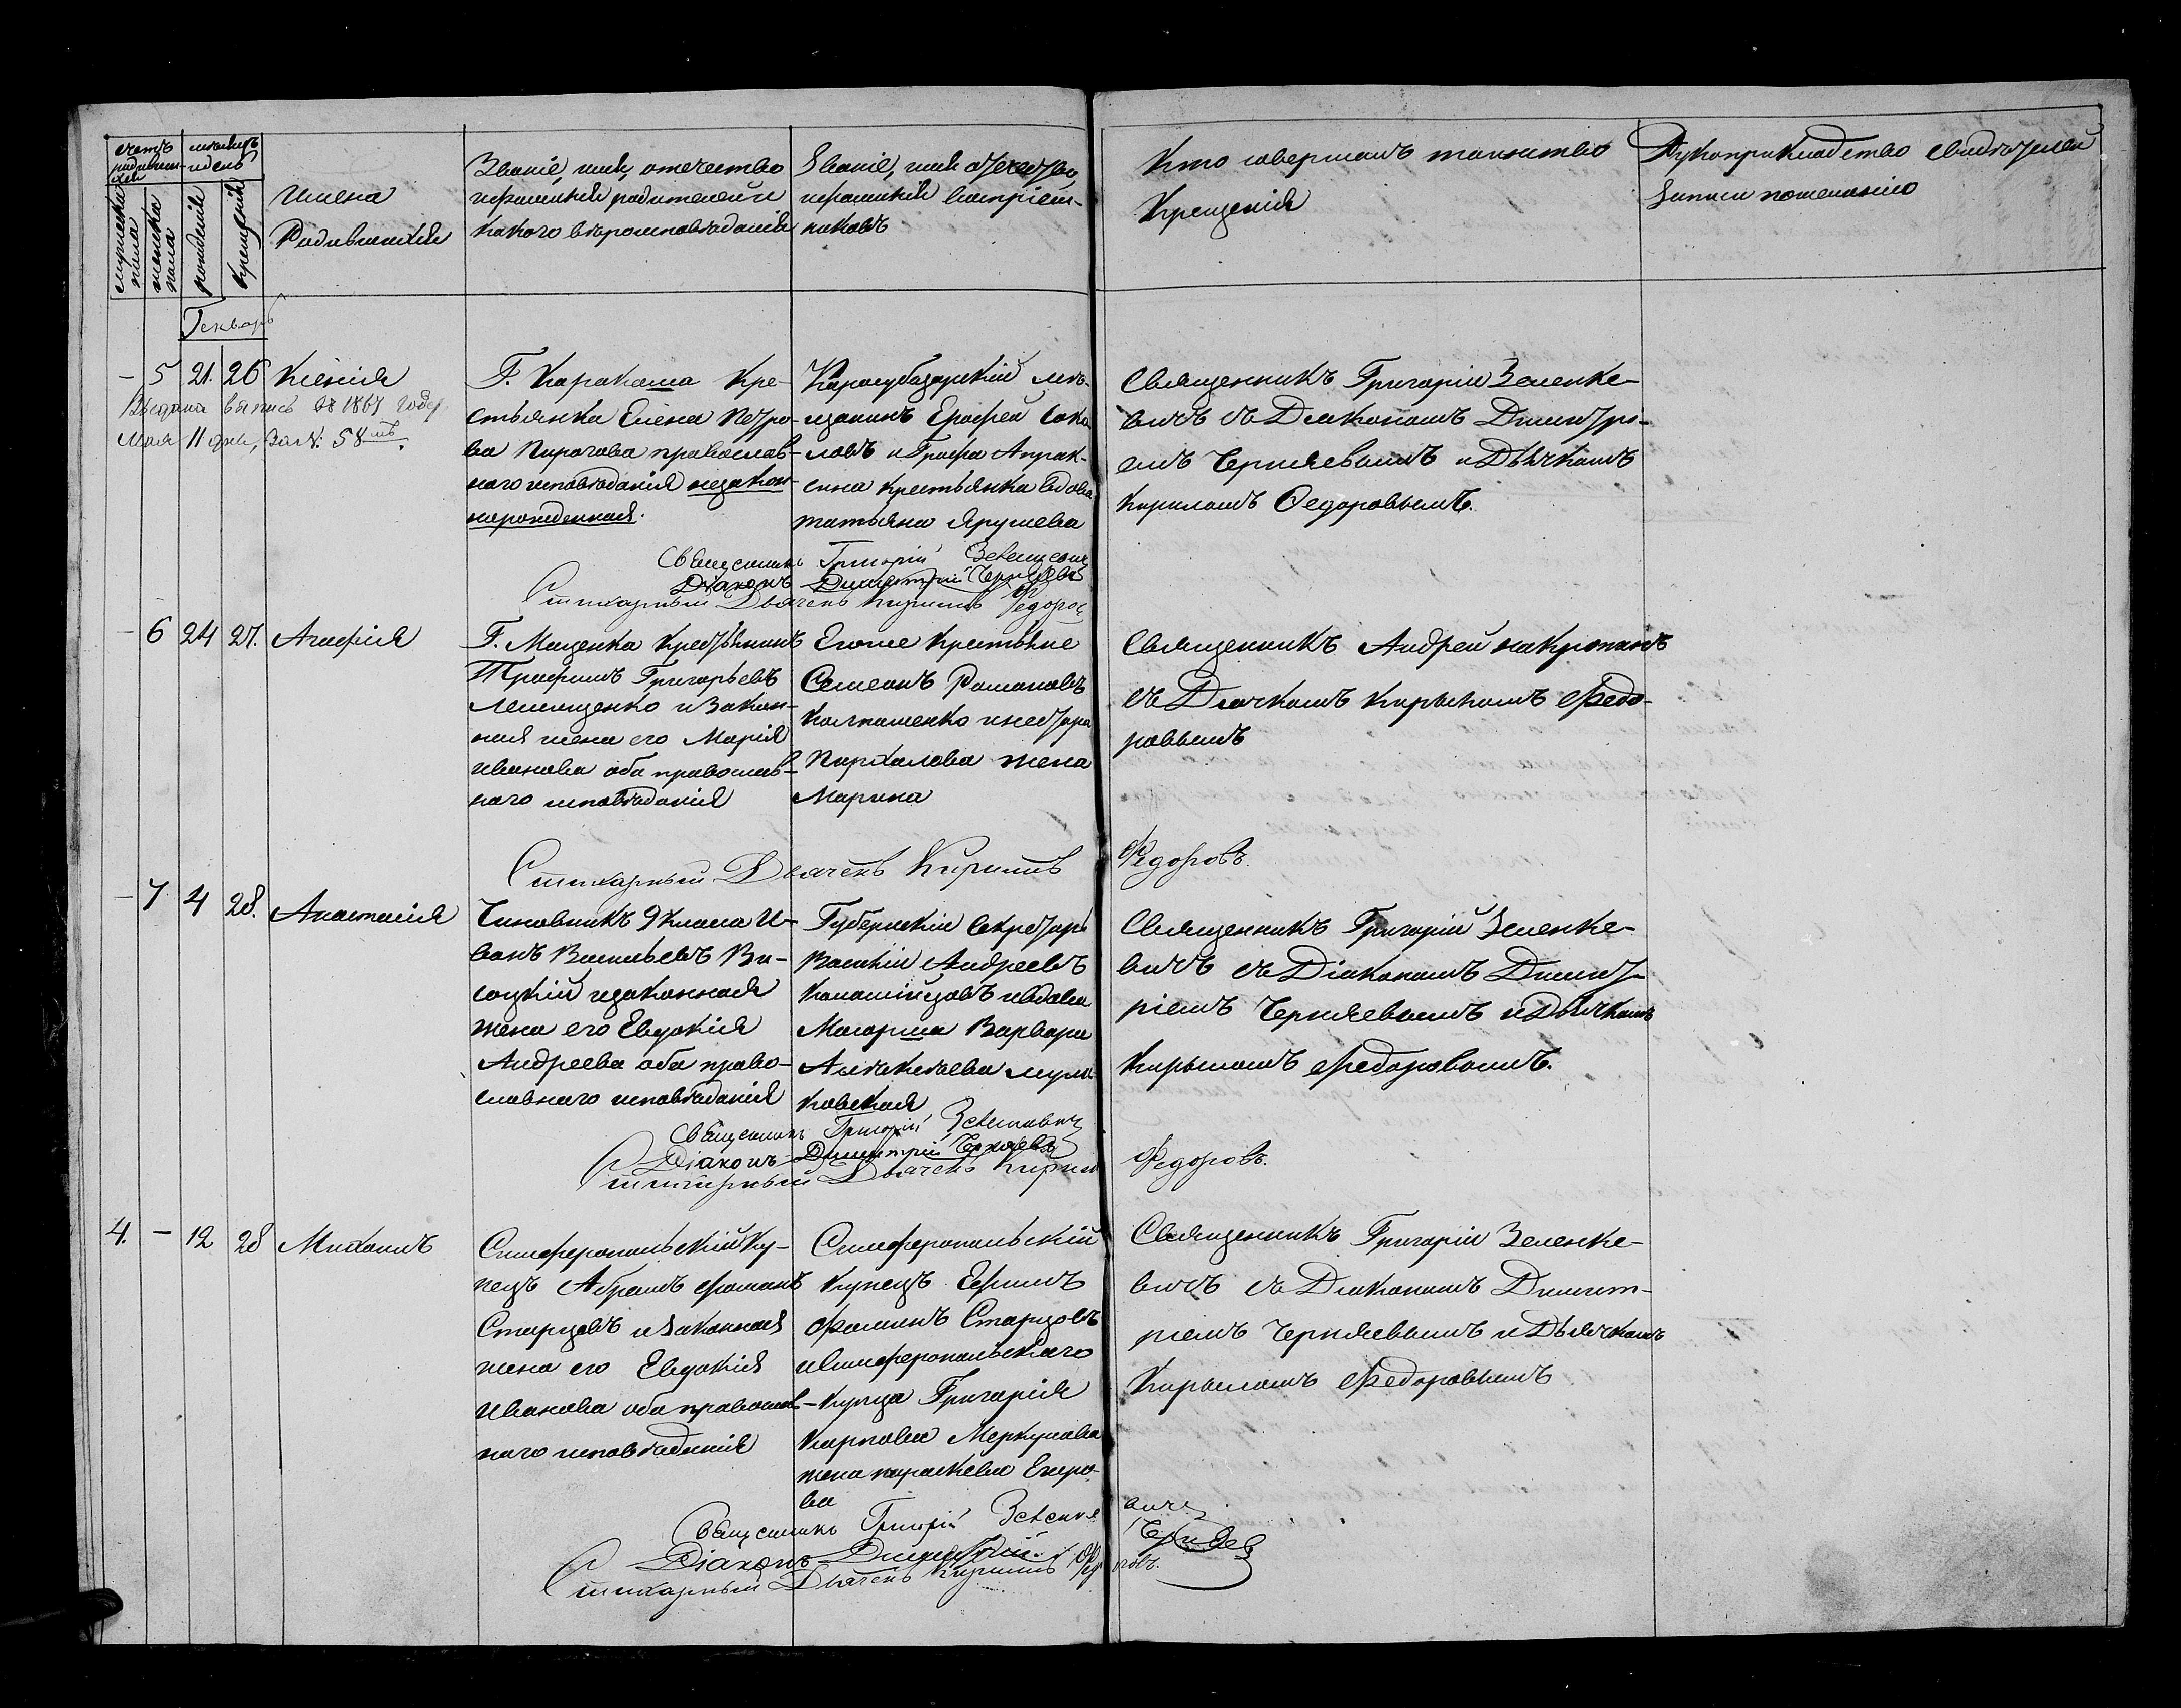 счетъ родившихся
мѣсяцъ и день
мужеска пола
женска пола
рожденія
крещенія
Имена
Родившихся
Званіе, имя, отечество
и фамилія родителей и
какого вѣроисповѣданія
Званіе, имя отечество
и фамилія воспріем-
никовъ
Кто совершалъ таинство
Крещенія
Рукоприкладство свидѣтелей
Записи по желанію
Генварь
— 5 21. 26 Ксенія
Выдана выпись въ 1867 годѣ
Мая 11 дня, за №. 58мъ.
Г. Каракаша Кре-
стьянка Елена Петро-
ва Пирогова православ-
наго исповѣданія незакон-
норожденная.
Карасубазарскій мѣ-
щанинъ Ерофей Соко
ловъ и Графа Апрак-
сина крестьянка вдова
татьяна Ярушева
Священникъ Григорій Зеленке-
вичъ съ Діакономъ Димитрі-
емъ Черняевымъ и Дьячкомъ
Кириломъ Федоровымъ.
Священникъ Григорій
Діаконъ Димитрій Черняевъ
Стихарный Дьячекъ Кирилъ Федоров
— 6 24 27. Агафія
Г. Мащенка Крестьянинъ
Трофимъ Григорьевъ
Лемищенко и Закон-
ная жена его Марія
Иванова оба православ-
наго исповѣданія
Егоже Крестьяне
Семеонъ Романовъ
Колташенко и нестора
Пархалова жена
Марина
Священникъ Андрей накропинъ
съ Діячкомъ Кирыломъ Федо-
ровымъ
Стихарный Дьячекъ Кирилъ Федоровъ.
— 7 4 28. Анастасія
Чиновникъ 9 класа И-
ванъ Васильевъ Ви-
соцкій изаконная
жена его Евдокія
Андреева оба право-
славнаго исповѣданія
Губернскій Секретарь
Василій Андреевъ
Коломійцовъ ивдова
Маіорша Варвара
Алѣкѣева мула-
ковская
Священникъ Григорій Зеленке-
вичъ съ Діакономъ Димит-
ріемъ Черняевымъ и Дьячкомъ
Кирыломъ Федоровымъ.
Священникъ Григорій
Діаконъ Димитрій Черняевъ
Стихарный Дьячекъ Кирил Федоровъ.
4. — 12 28 Михаилъ
Симферопольскій Ку-
пецъ Абрамъ Фоминъ
Старцевъ и Законная
жена его Евдокія
Иванова оба православ-
наго исповѣданія
Симферопольскій
Купецъ Ефимъ
Фоминъ Старцовъ
и Симферопольскаго
Купца Григорія
Карпова Меркулова
жена параскева Егоро-
ва
Священникъ Григорій Зеленке-
вичъ съ Діакономъ Димит-
ріемъ Черняевымъ и Дьячкомъ
Кирыломъ Федоровымъ
Священникъ Григорій Зеленкевичъ
Діаконъ Димитрій Черняев
Стихарный Дьячекъ Кирилъ